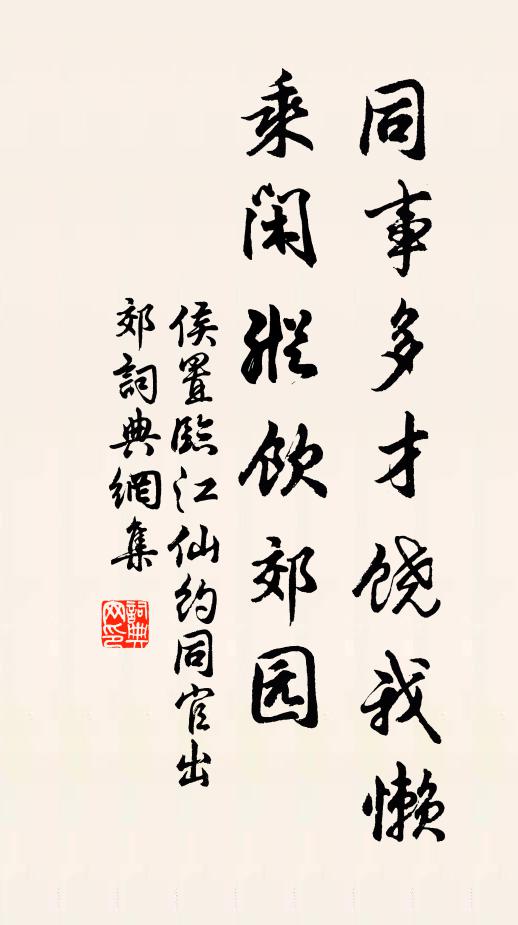 同事多才饶我懒
乘闲纵饮郊园
侯置臨江仙约同官出
郊詞典網集
詞典
网印